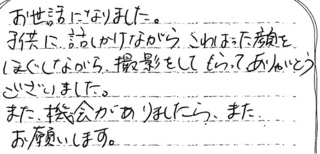 お世話になりました。
子供に話しかけながら、こわばった顔を
ほぐしながら、撮影をしてもらってありがとう
ございました。
また、機会がありましたら、また
お願いします。